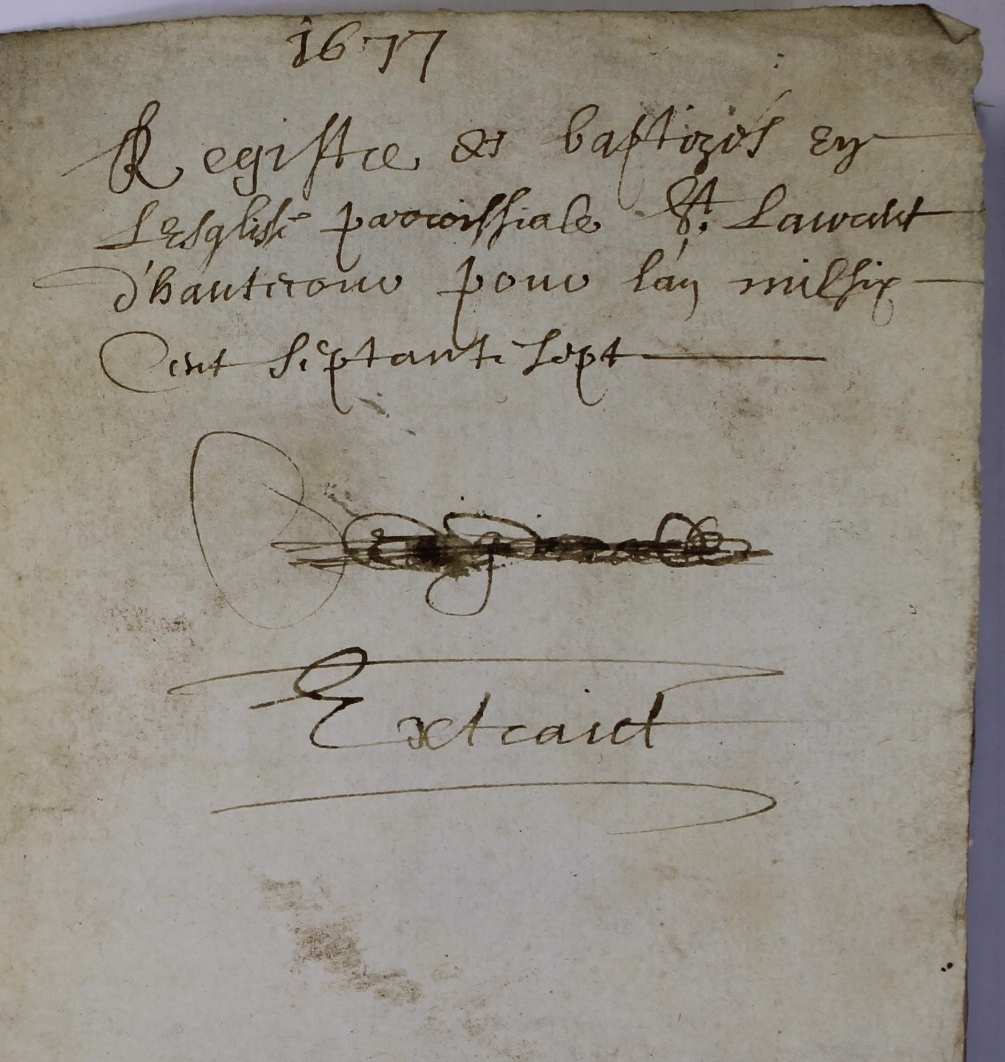 1677
Registre des baptizés en
L'Esglise parroissiale St. Laurent
d'hautecour pour l'an mil six
Cent Septante Sept
Extraict